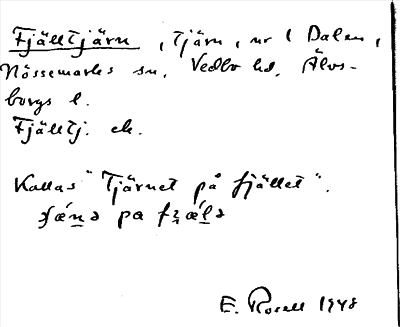 Fjälltjärn, tjärn, nr 1 Dalen,
Nössemarks sn, Vedbo hd, Älvs-
borgs l.
Fjälltj. ek.
Kallas "Tjärnet på fjället".
pa
E. Rosell 1948